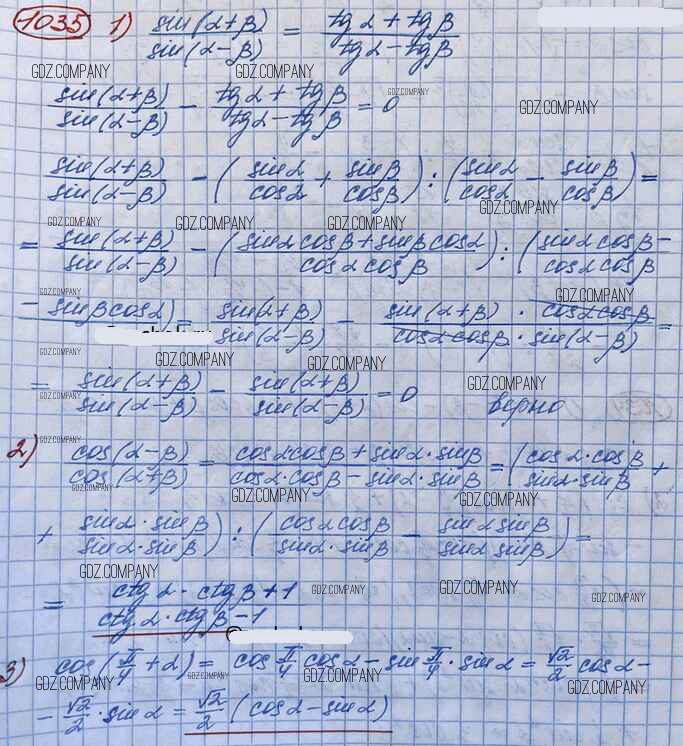 1035 1) sin(α+β)/sin(α−β) = (tgα + tgβ)/(tgα − tgβ)
GDZ.COMPANY GDZ.COMPANY
sin(α+β)/sin(α−β) − (tgα + tgβ)/(tgα − tgβ) = 0 GDZ.COMPANY GDZ.COMPANY
sin(α+β)/sin(α−β) − (sinα/cosα + sinβ/cosβ) : (sinα/cosα − sinβ/cosβ) =
GDZ.COMPANY
GDZ.COMPANY GDZ.COMPANY GDZ.COMPANY
= sin(α+β)/sin(α−β) − ((sinα cosβ + sinβ cosα)/(cosα cosβ)) : ((sinα cosβ −)/(cosα cosβ)
GDZ.COMPANY GDZ.COMPANY
− sinβ cosα) = sin(α+β)/sin(α−β) − (sin(α+β) · cosα cosβ)/(cosα cosβ · sin(α−β)) =
GDZ.COMPANY GDZ.COMPANY GDZ.COMPANY
= sin(α+β)/sin(α−β) − sin(α+β)/sin(α−β) = 0 верно
GDZ.COMPANY GDZ.COMPANY
GDZ.COMPANY
2) cos(α−β)/cos(α+β) = (cosα·cosβ + sinα·sinβ)/(cosα·cosβ − sinα·sinβ) = (cosα·cosβ/sinα·sinβ +
GDZ.COMPANY GDZ.COMPANY GDZ.COMPANY
+ sinα·sinβ/sinα·sinβ) : (cosα cosβ/sinα·sinβ − sinα sinβ/sinα sinβ) =
GDZ.COMPANY GDZ.COMPANY GDZ.COMPANY GDZ.COMPANY
= (ctgα · ctgβ + 1)/(ctgα · ctgβ − 1)
3) cos(π/4 + α) = cos π/4 cosα − sin π/4 · sinα = √2/2 cosα −
GDZ.COMPANY GDZ.COMPANY GDZ.COMPANY GDZ.COMPANY
− √2/2 · sinα = √2/2 (cosα − sinα)